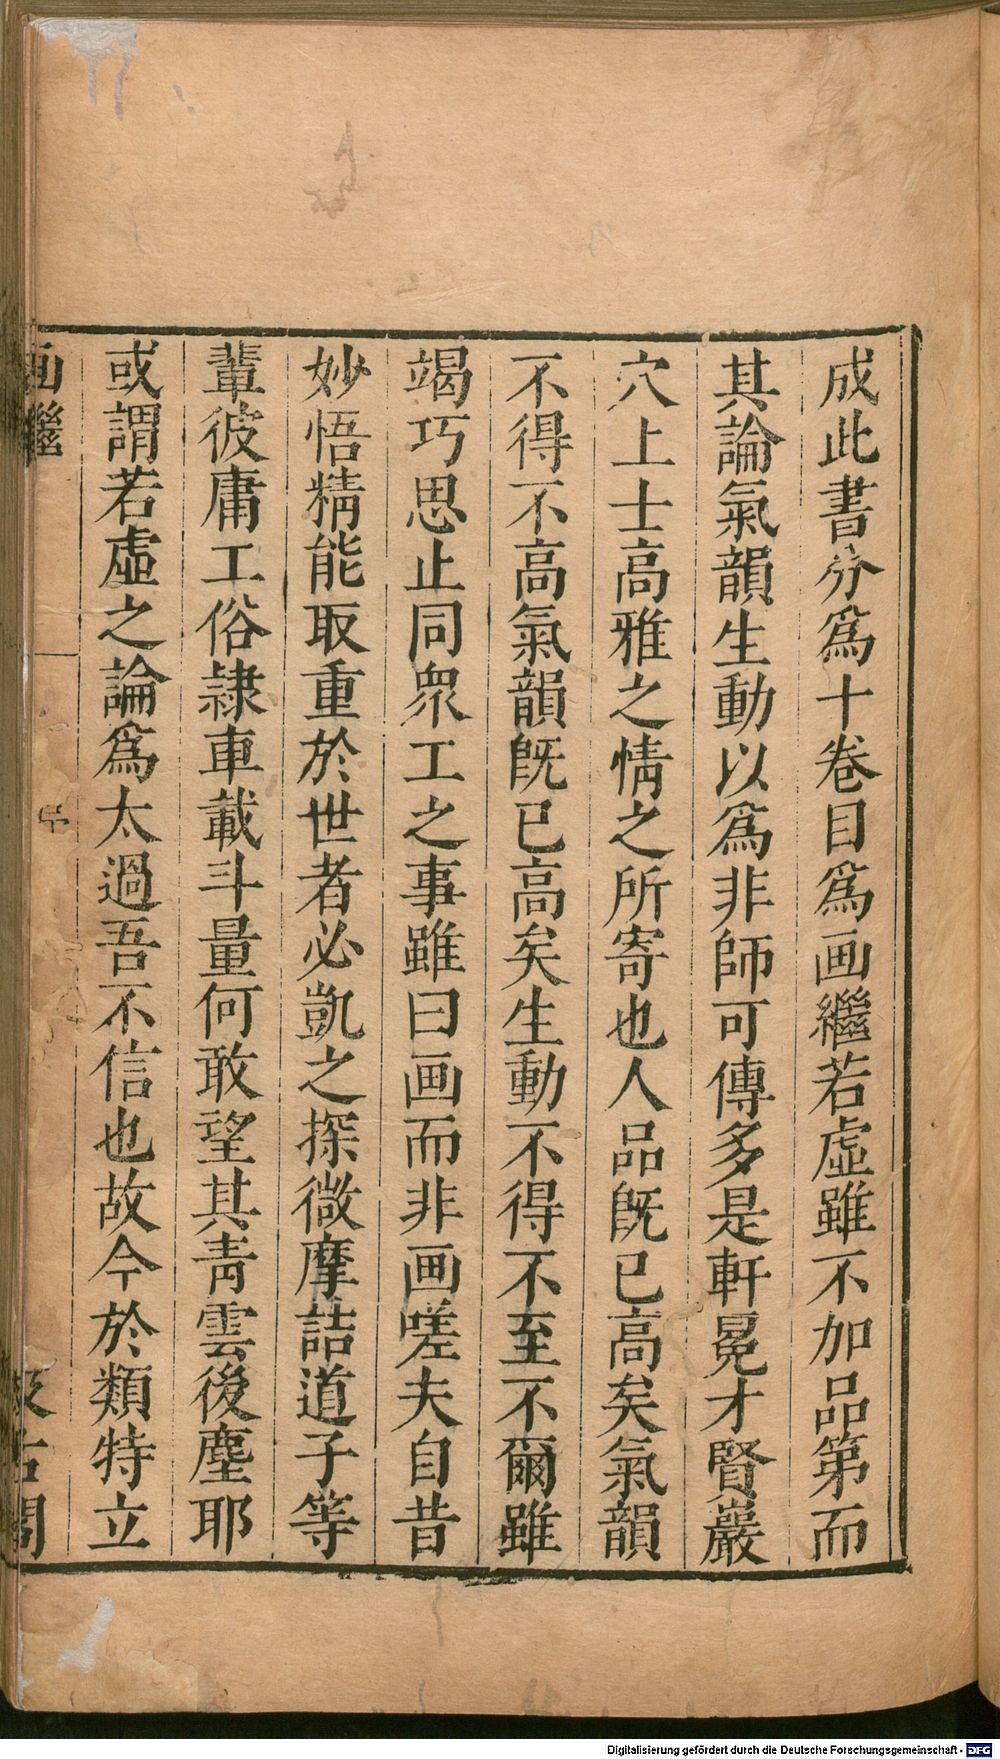 成此書分爲十卷目爲画繼若虛雖不加品第而
其論氣韻生動以爲非師可傳多是軒冕才賢巖
穴上士高雅之情之所寄也人品既已高矣氣韻
不得不高氣韻既已高矣生動不得不至不爾雖
竭巧思止同衆工之事雖曰画而非画嗟夫自昔
妙悟精能取重於世者必凱之探微摩詰道子等
輩彼庸工俗隷車載斗量何敢望其青雲後塵耶
或謂若虛之論爲太過吾不信也故今於類特立
画繼
序
汲古閣
Digitalisierung gefördert durch die Deutsche Forschungsgemeinschaft - DFG